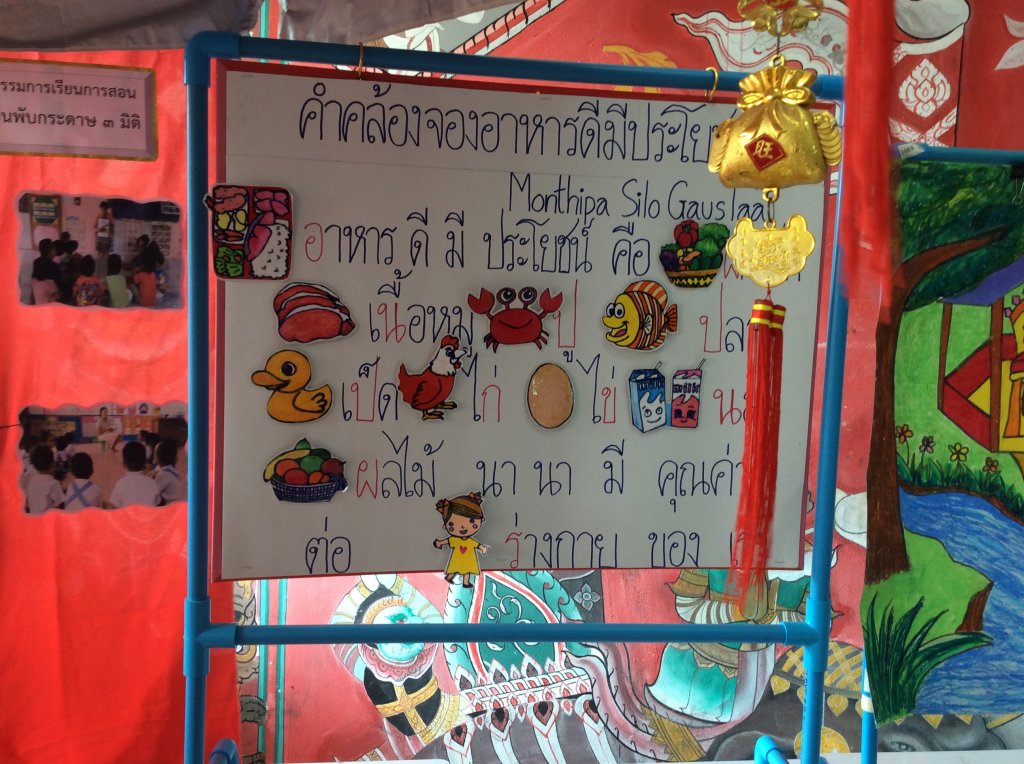 รรมการเรียนการสอน
นพับกระดาษ ๓ มิติ
คำคล้องจองอาหารดีมีประโย
Monthipa Silo Gauslaa
อาหาร ดี มี ประโยชน์ คือ
เนื้อหมู ปู ปลา
เป็ด ไก่ ไข่
ผลไม้ นา นา มี คุณค่า
ต่อ ร่างกาย ของ
旺